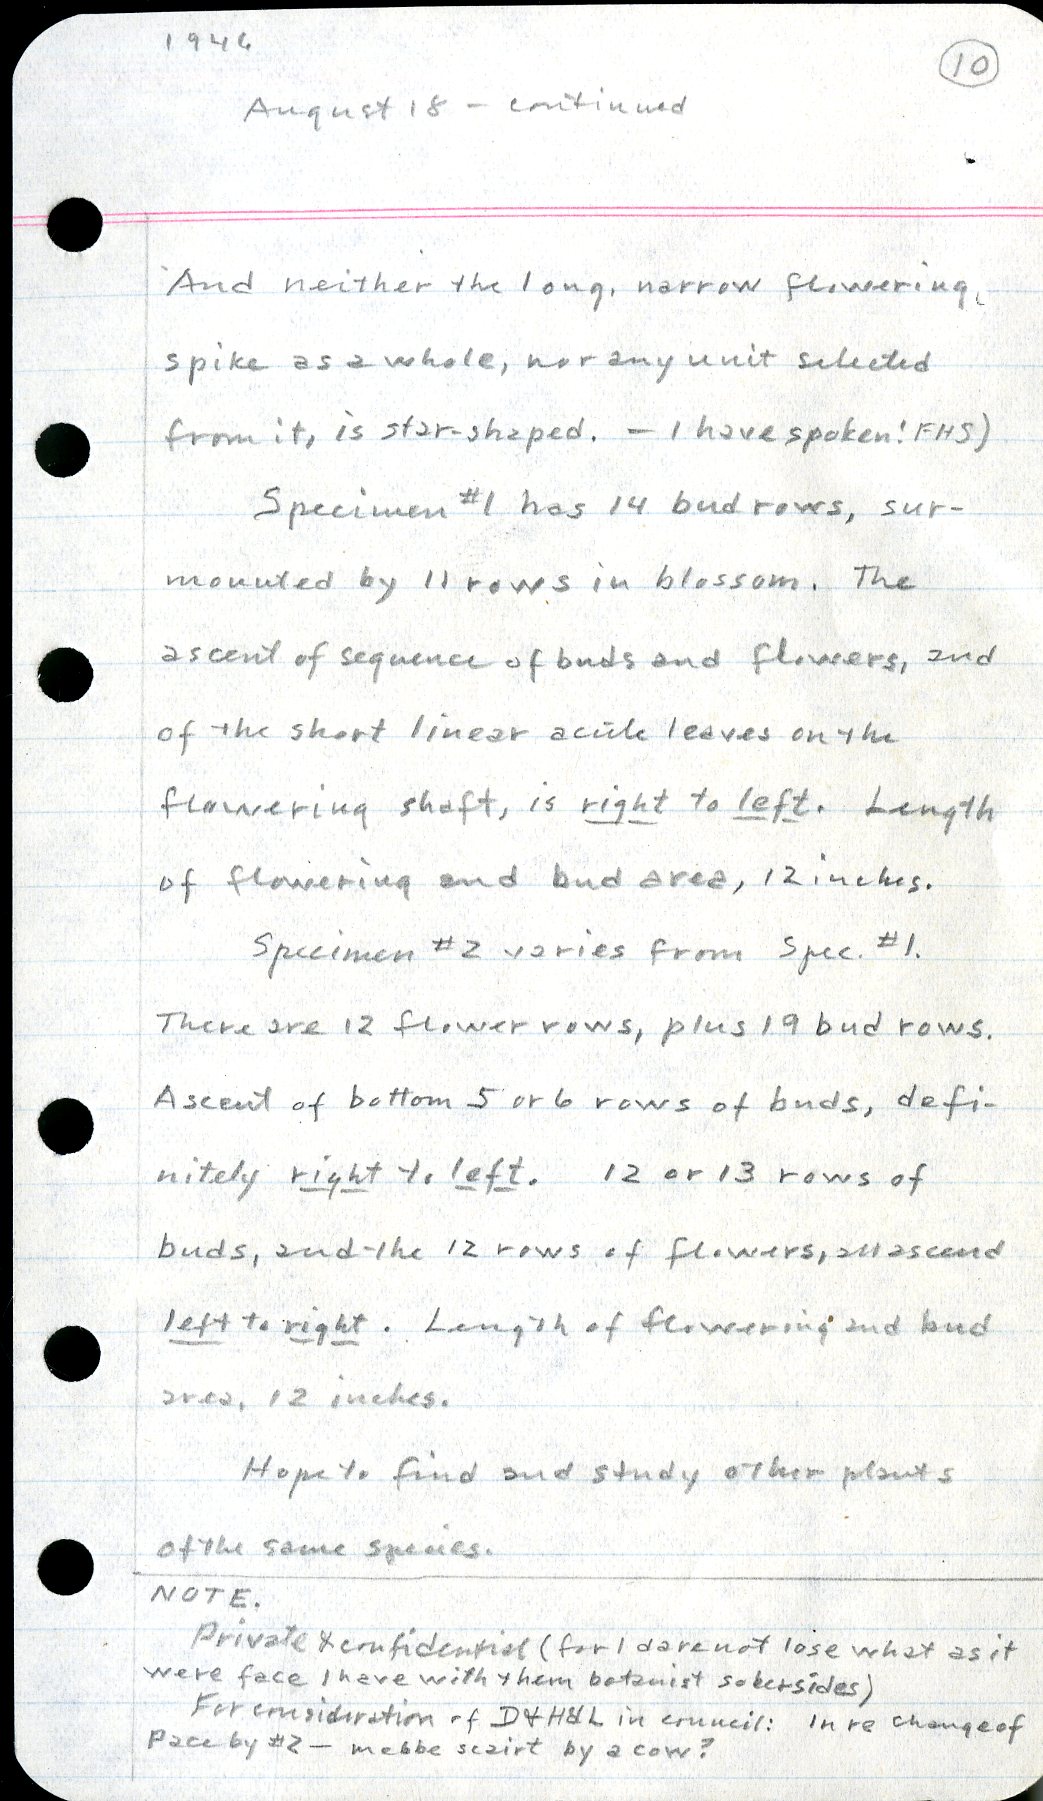 1946
10
August 18 - continued
And neither the long, narrow flowering,
spike as a whole, nor any unit selected
from it, is star-shaped. - I have spoken! FHS)
Specimen #1 has 14 bud rows, sur-
mounted by 11 rows in blossom. The
ascent of sequence of buds and flowers, and
of the short linear acute leaves on the
flowering shaft, is right to left. Length
of flowering and bud area, 12 inches.
Specimen #2 varies from Spec. #1.
There are 12 flower rows, plus 19 bud rows.
Ascent of bottom 5 or 6 rows of buds, defi-
nitely right to left. 12 or 13 rows of
buds, and the 12 rows of flowers, all ascend
left to right. Length of flowering and bud
area, 12 inches.
Hope to find and study other plants
of the same species.
NOTE.
Private & confidential (for I dare not lose what as it
were face I have with them botanist sobersides)
For consideration of D & H & L in council: In re change of
Pace by #2 - mebbe scairt by a cow?